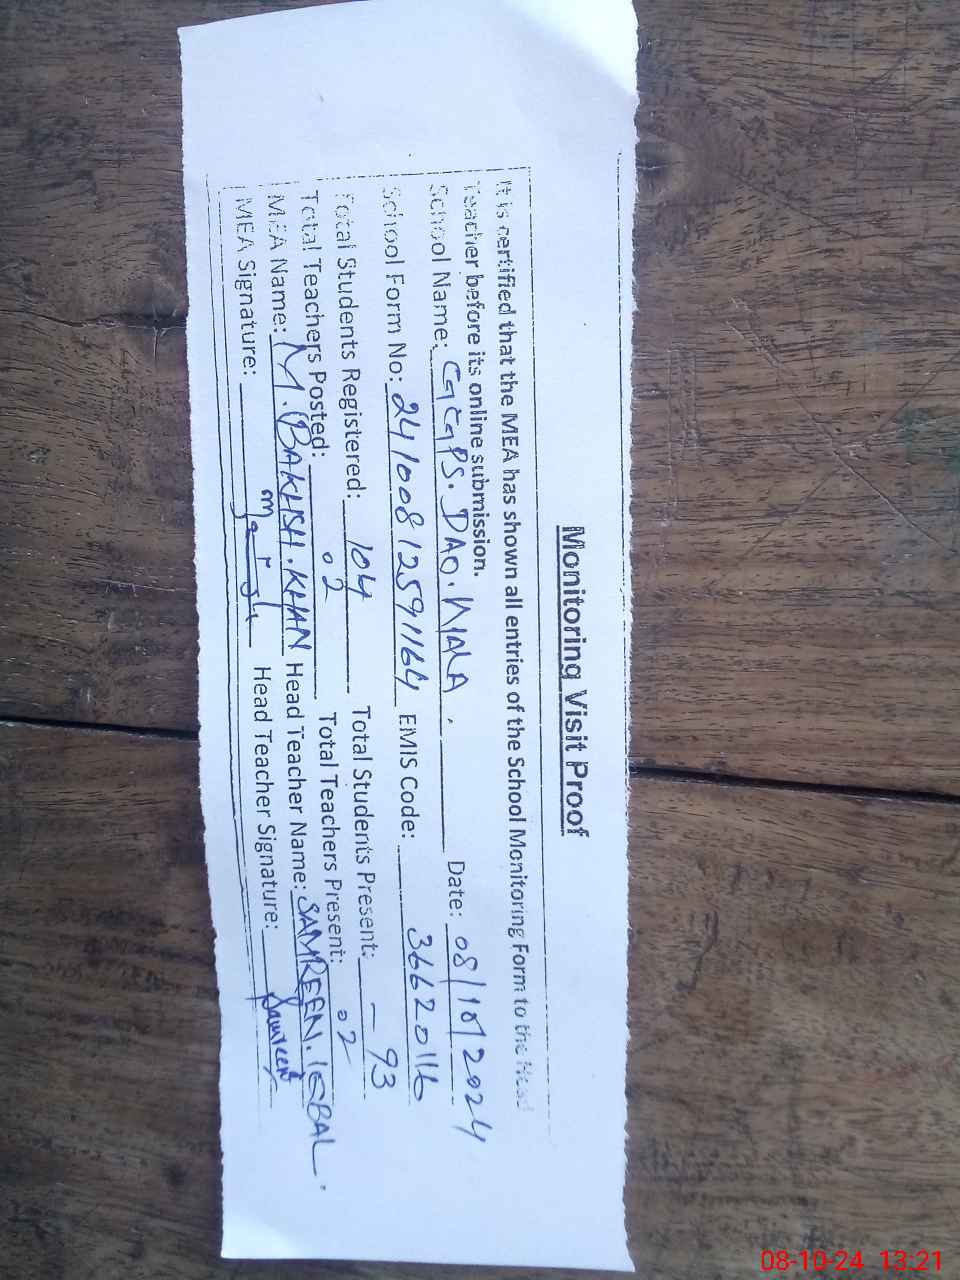 Monitoring Visit Proof
It is certified that the MEA has shown all entries of the School Monitoring Form to the Head
Teacher before its online submission.
School Name: GGPS. DAO. WALA. Date: 08/10/2024
School Form No: 24100812591164 EMIS Code: 36620116
Total Students Registered: 104 Total Students Present: - 93
Total Teachers Posted: 02 Total Teachers Present: 02
MEA Name: M. BAKHSH. KHAN Head Teacher Name: SAMREEN. IQBAL.
MEA Signature: Head Teacher Signature: Samreen
08-10-24 13:21